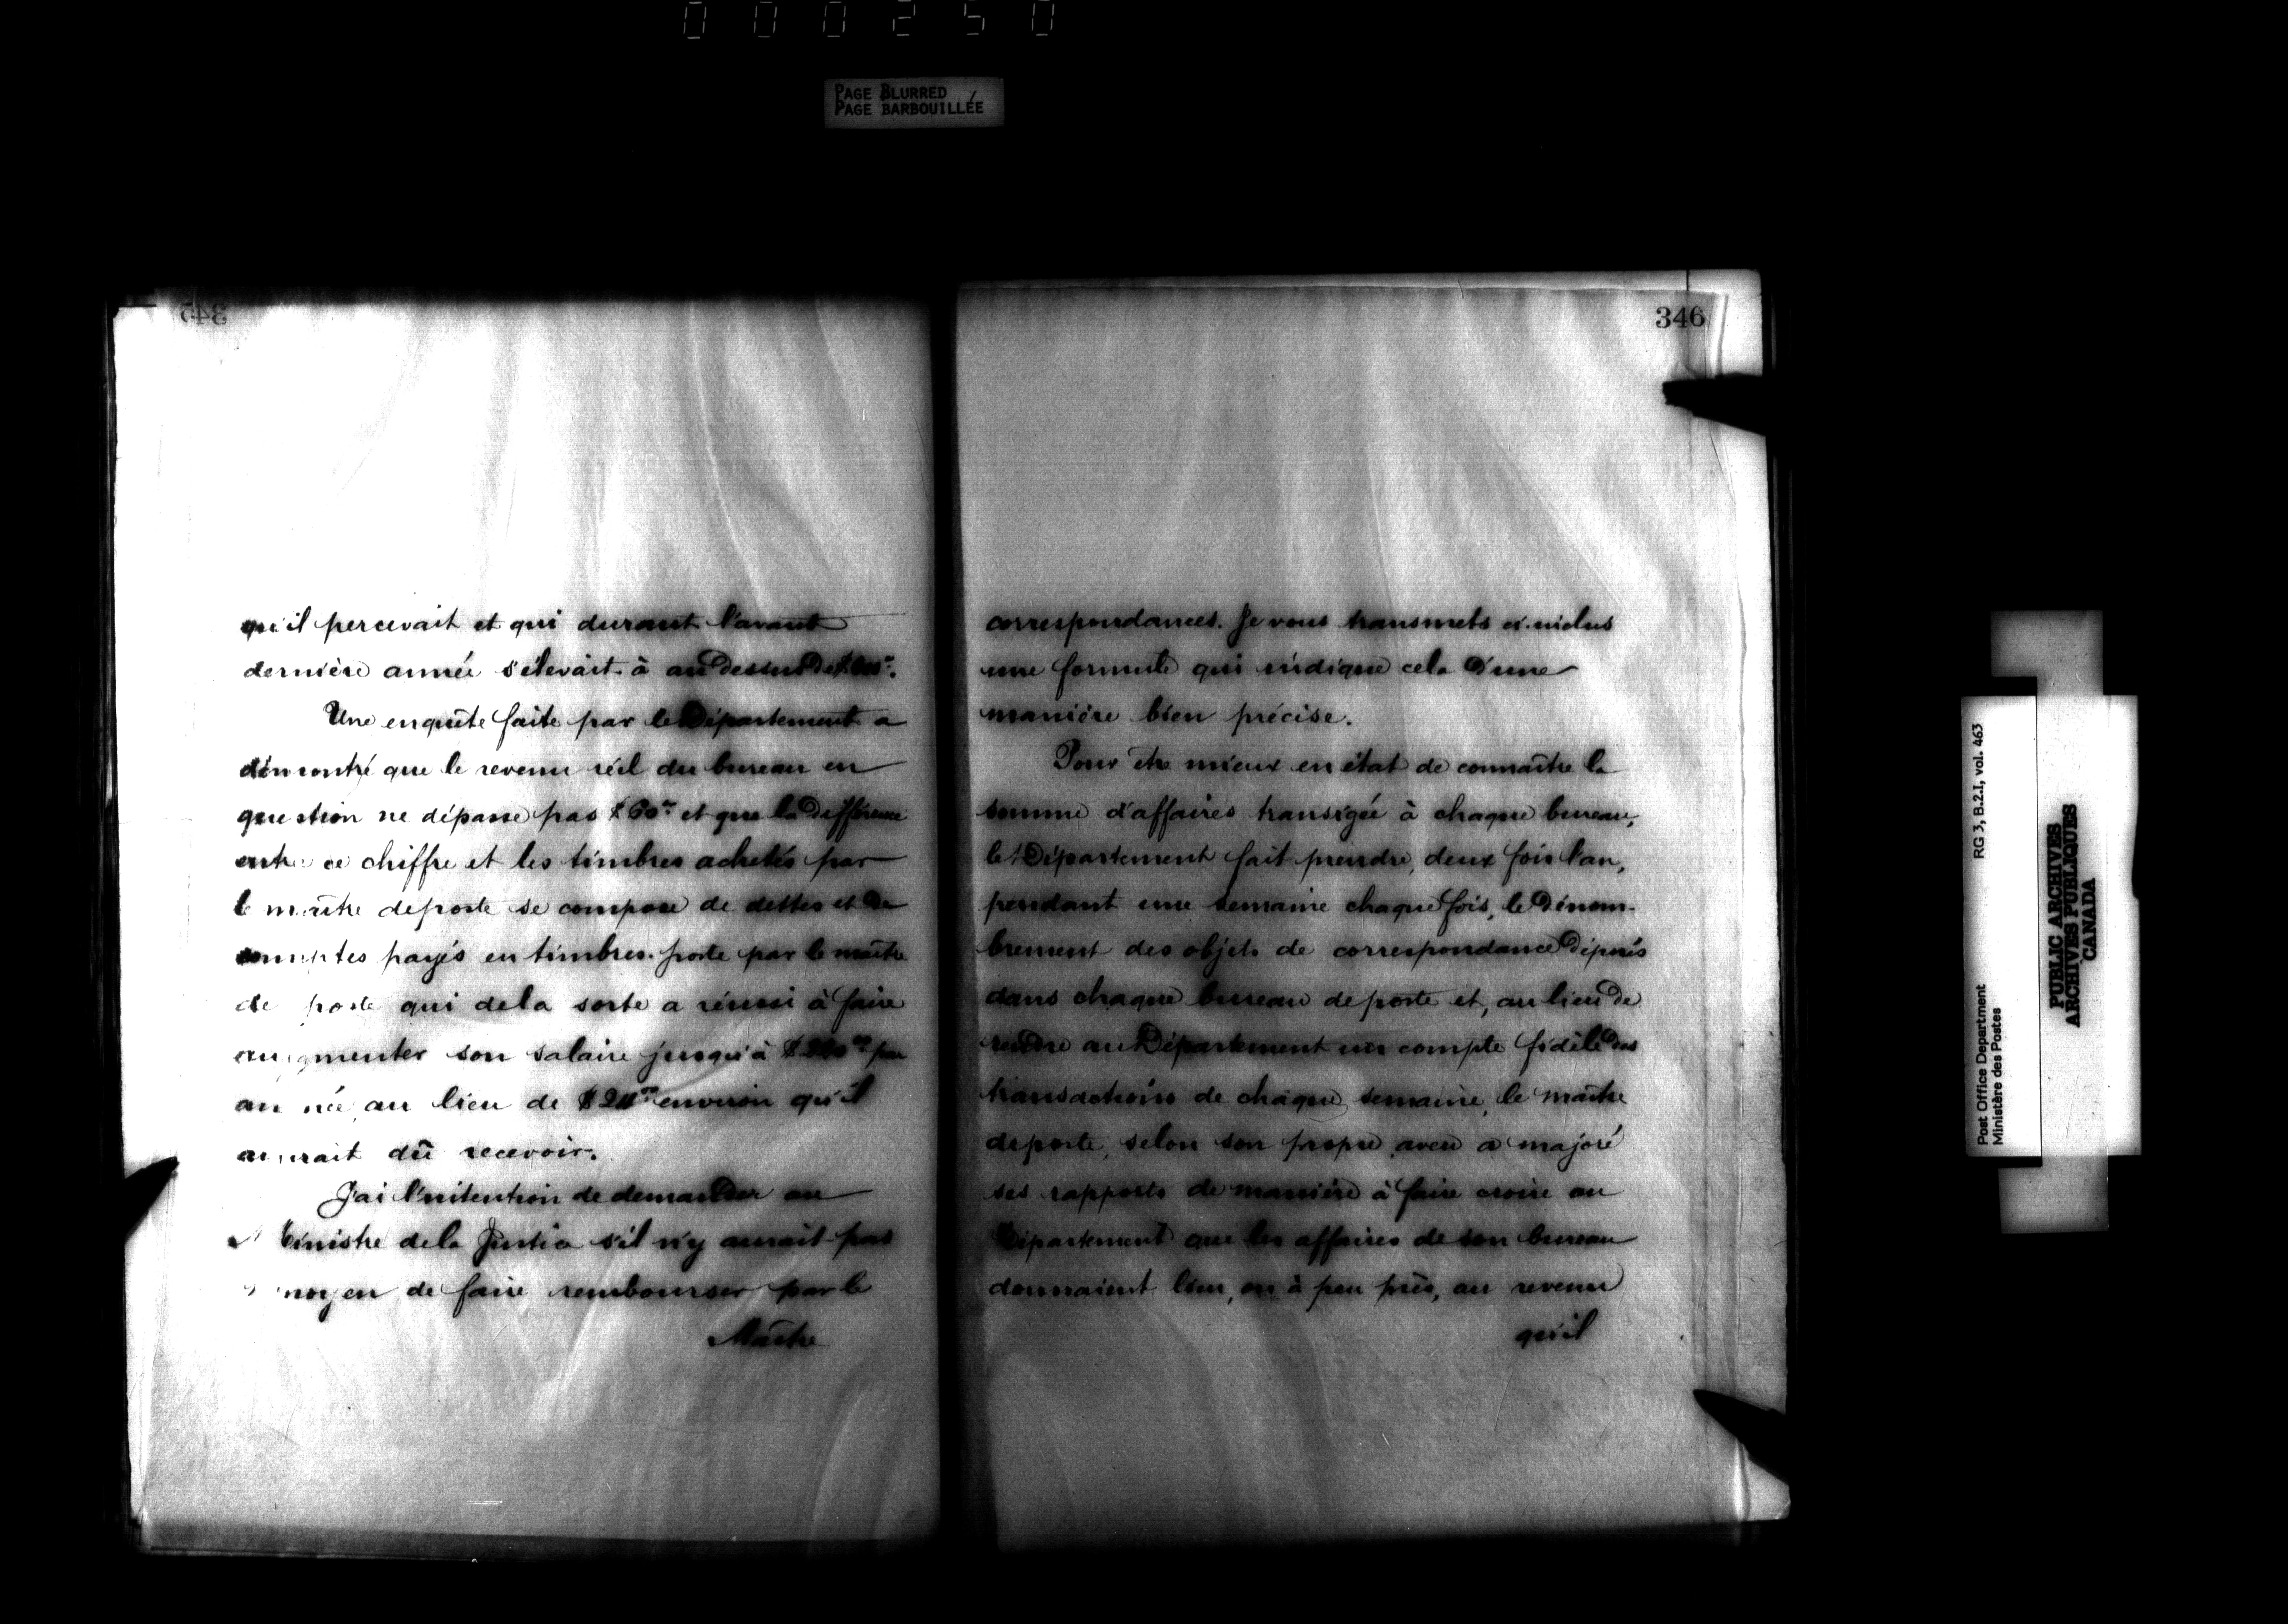 000250
PAGE BLURRED
PAGE BARBOUILLÉE
345
qu'il percevait et qui durant l'avant
dernière année s'élevait à au dessus de
Une enquête faite par le Département a
démontré que le revenu réel du bureau en
question ne dépasse pas $60 00 et que la différence
entre ce chiffre et les timbres achetés par
le maître de poste se compose de dettes et de
comptes payés en timbres-poste par le maître
de poste qui de la sorte a réussi à faire
augmenter son salaire jusqu'à par
année au lieu de environ qu'il
aurait dû recevoir.
J'ai l'intention de demander au
Ministre de la Justice s'il n'y aurait pas
moyen de faire rembourser par le
Maître
346
correspondances. Je vous transmets ci-inclus
une formule qui indique cela d'une
manière bien précise.
Pour être mieux en état de connaître la
somme d'affaires transigée à chaque bureau,
le Département fait prendre, deux fois l'an,
pendant une semaine chaque fois, le dénom-
brement des objets de correspondance déposés
dans chaque bureau de poste et, au lieu de
rendre au Département un compte fidèle des
transactions de chaque semaine, le maître
de poste, selon son propre aveu a majoré
ses rapports de manière à faire croire au
Département que les affaires de son bureau
donnaient lieu, ou à peu près, au revenu
qu'il
Post Office Department
Ministère des Postes
RG 3, B.2.I, vol. 463
PUBLIC ARCHIVES
ARCHIVES PUBLIQUES
CANADA